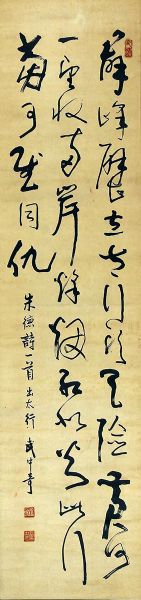 群峰壁立太行头天險黄河
一望收两岸烽烟红似火此行
當可慰同仇
朱德詩一首 出太行 武中奇